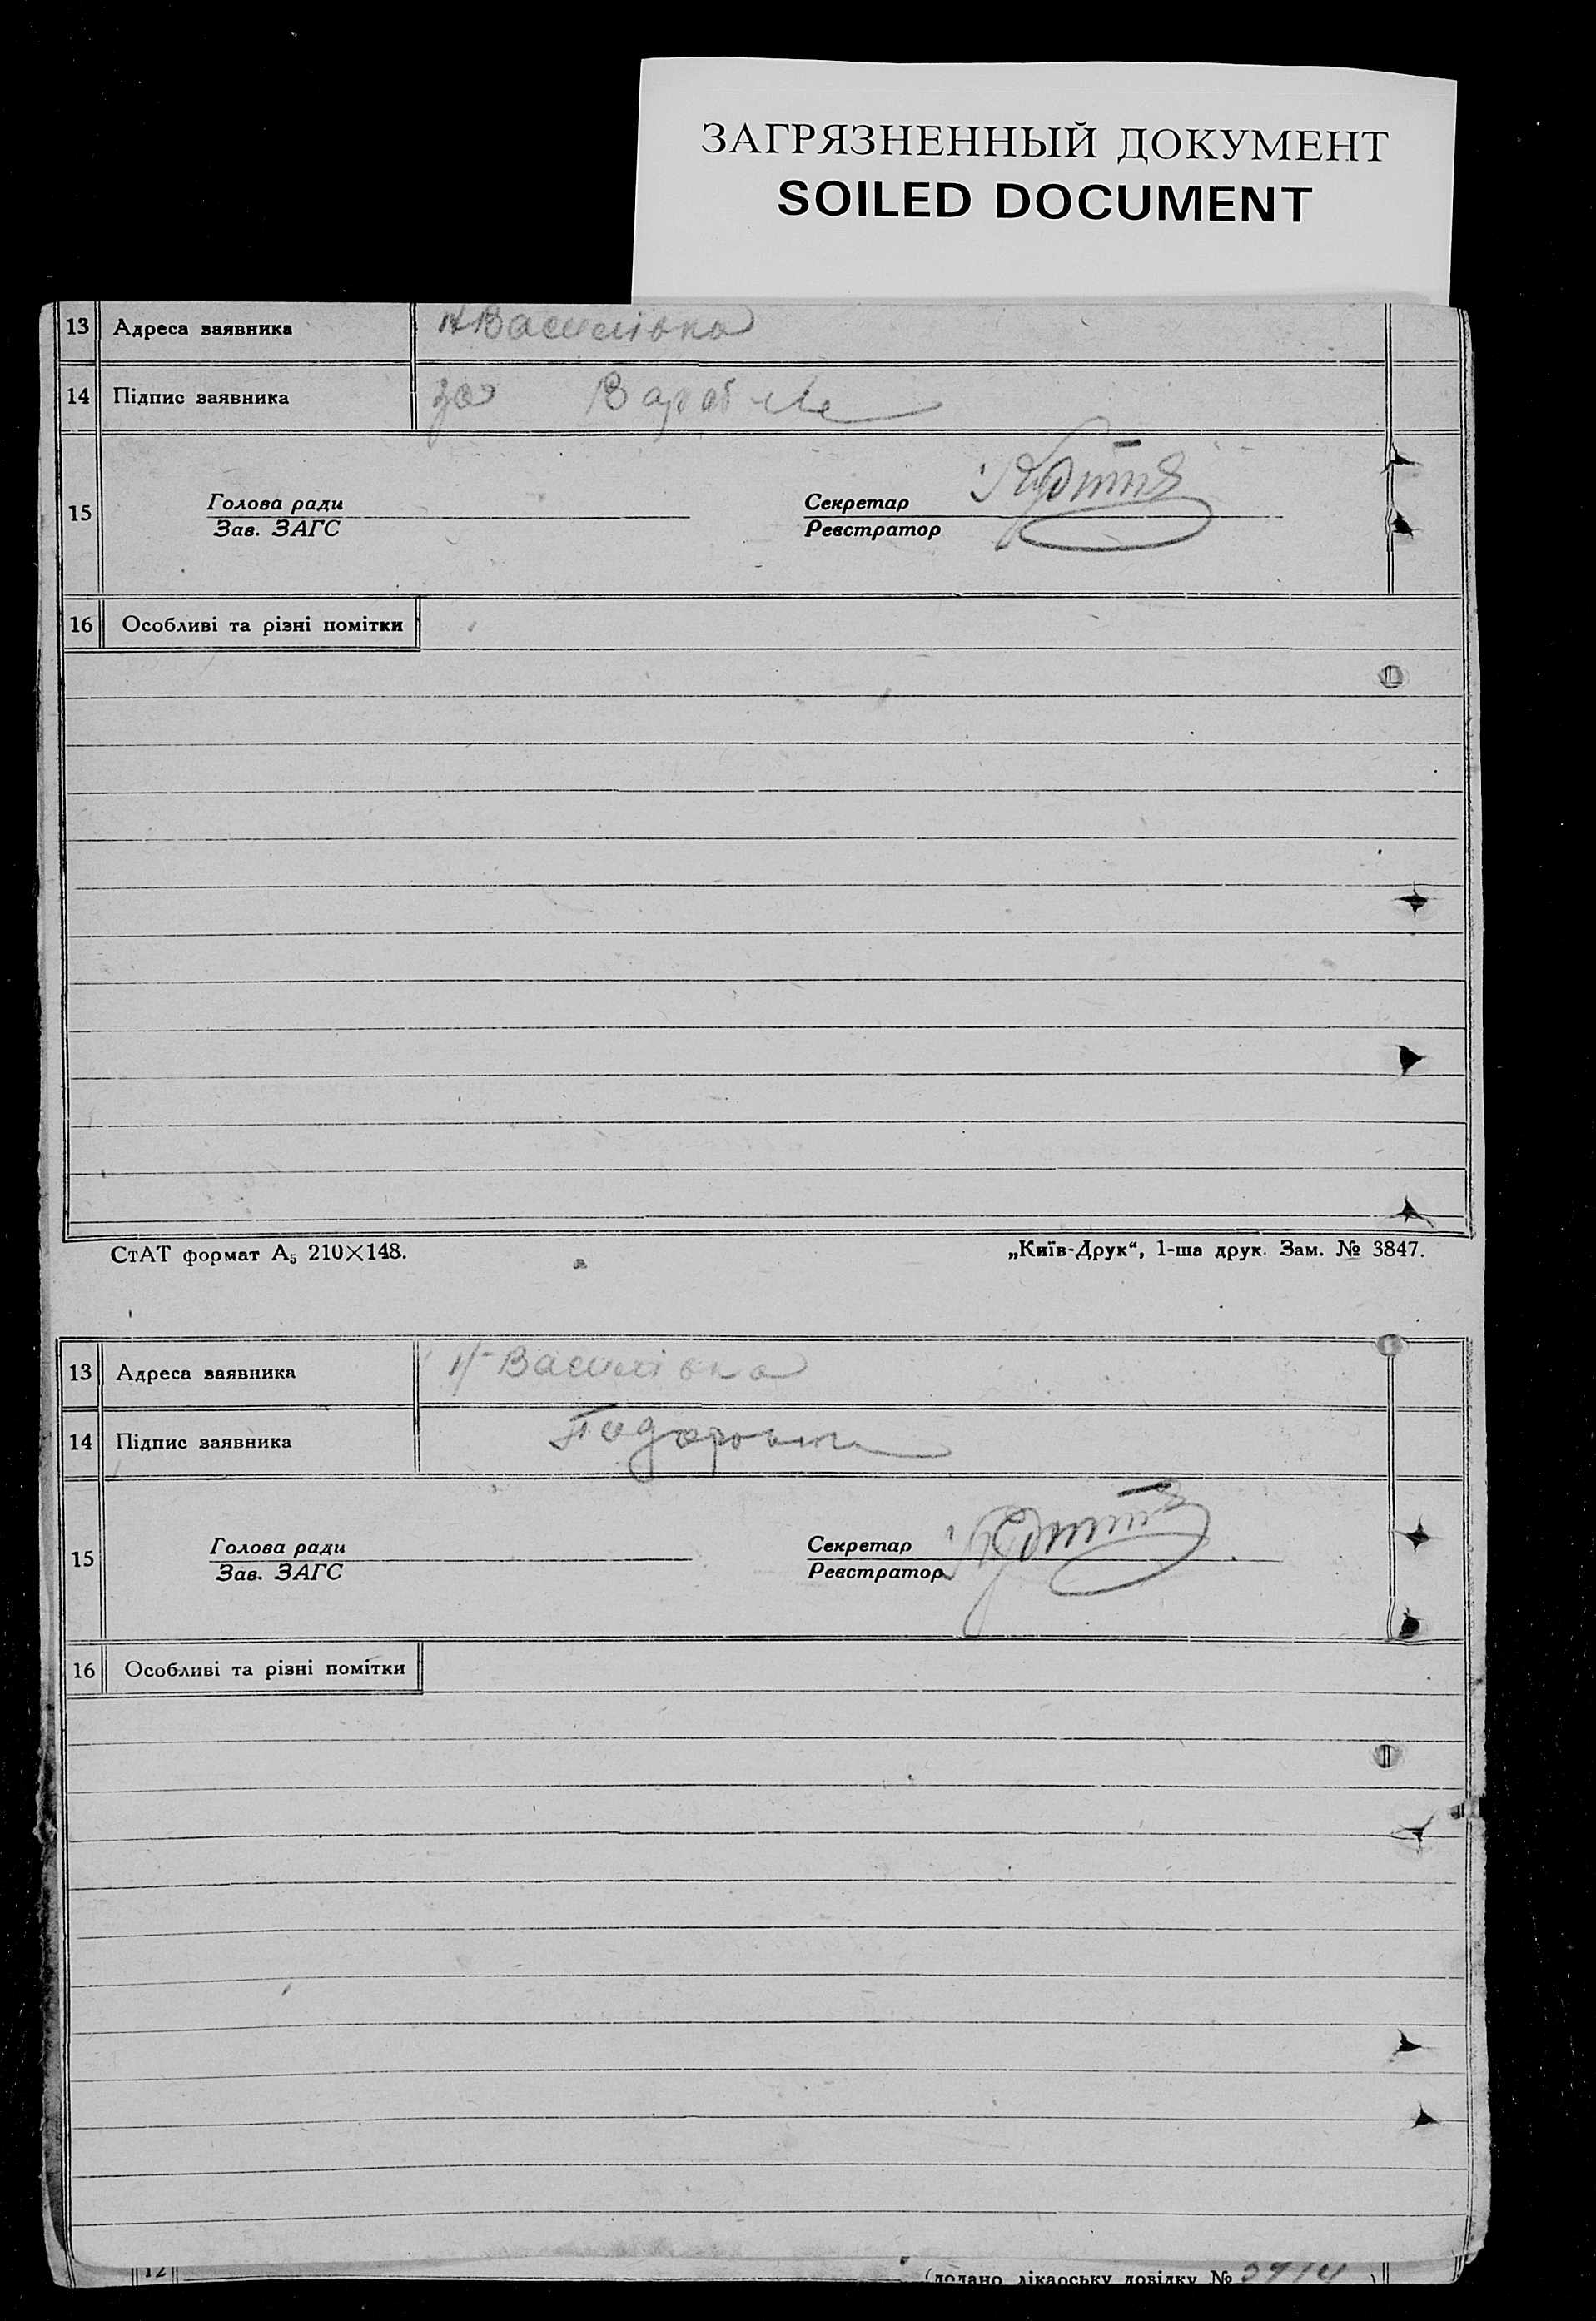 ЗАГРЯЗНЕННЫЙ ДОКУМЕНТ
SOILED DOCUMENT
13 Адреса заявника Н Василівка
14 Підпис заявника за
15 Голова ради Секретар
Зав. ЗАГС Реєстратор
16 Особливі та різні помітки
СтАТ формат А5 210×148. „Київ-Друк“, 1-ша друк. Зам. № 3847.
13 Адреса заявника Н-Василівка
14 Підпис заявника
15 Голова ради Секретар
Зав. ЗАГС Реєстратор
16 Особливі та різні помітки
12 (додано лікарську довідку №